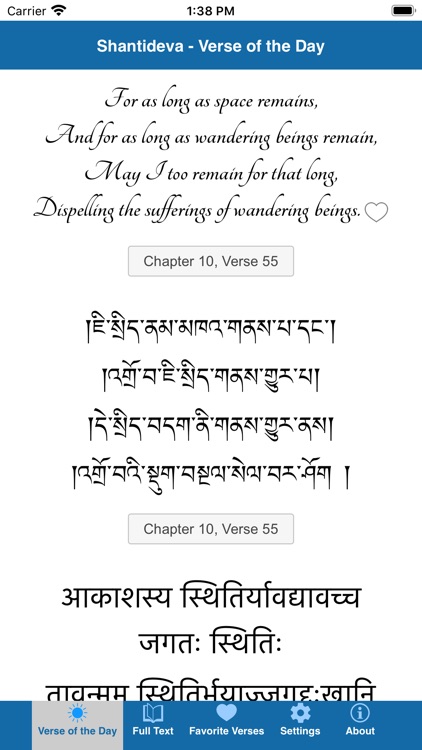 Carrier 1:38 PM
Shantideva - Verse of the Day
For as long as space remains,
And for as long as wandering beings remain,
May I too remain for that long,
Dispelling the sufferings of wandering beings.
Chapter 10, Verse 55
།ཇི་སྲིད་ནམ་མཁའ་གནས་པ་དང་།
།འགྲོ་བ་ཇི་སྲིད་གནས་གྱུར་པ།
།དེ་སྲིད་བདག་ནི་གནས་གྱུར་ནས།
།འགྲོ་བའི་སྡུག་བསྔལ་སེལ་བར་ཤོག །
Chapter 10, Verse 55
आकाशस्य स्थितिर्यावद्यावच्च
जगतः स्थितिः
तावन्मम स्थितिर्भूयाज्जगद्दुःखानि
Verse of the Day Full Text Favorite Verses Settings About